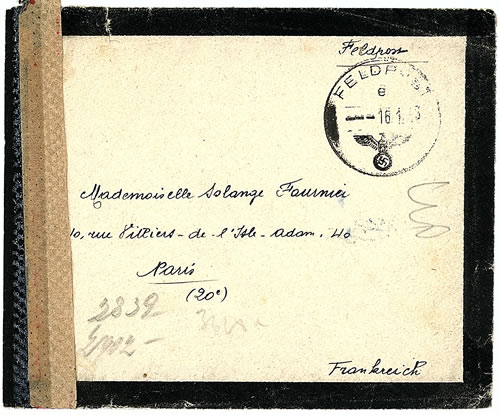 Feldpost
FELDPOST
e
16.1. 3
Mademoiselle Solange Fournier
rue Villiers-de-l'Isle-Adam, 40
Paris
(20e)
2839
Frankreich